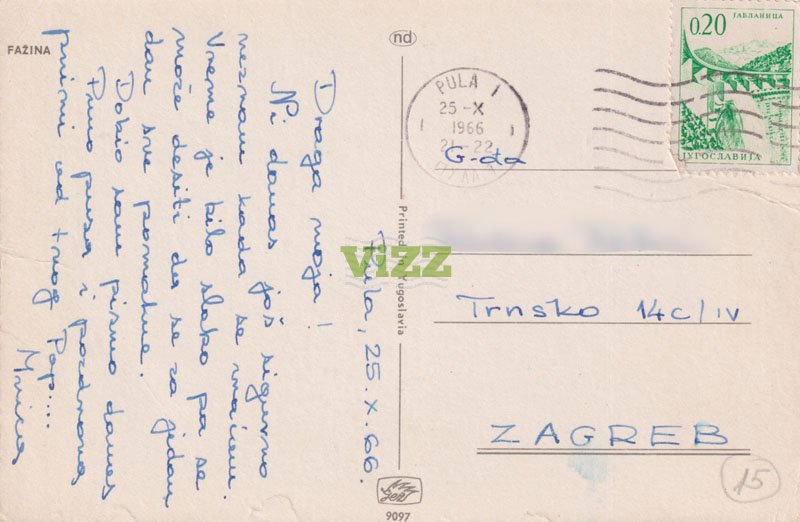 FAŽINA
nd
PULA 1
25-X
1966
21-22
0.20
ЈАБЛАНИЦА
ЈУГОСЛАВИЈА
Pula, 25.X.66.
Draga moja!
Ni danas još sigurno
neznam kada se vraćam.
Vreme je bilo slabo pa se
može desiti da se za jedan
dan sve pomakne.
Dobio sam pismo danas
Puno pusa i pozdrava
primi od tvog Pap....
Printed in Yugoslavia
ViZZ
G-đa
Trnsko 14c/IV
ZAGREB
15
9097